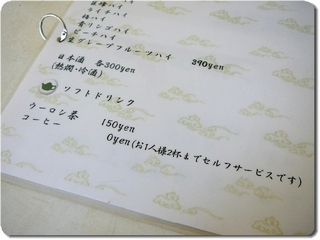 巨峰ハイ
ライチハイ
梅ハイ
青リンゴハイ
ピーチハイ
生グレープフルーツハイ 390yen
日本酒 各300yen
(熱燗・冷酒)
ソフトドリンク
ウーロン茶 150yen
コーヒー 0yen(お1人様2杯までセルフサービスです)